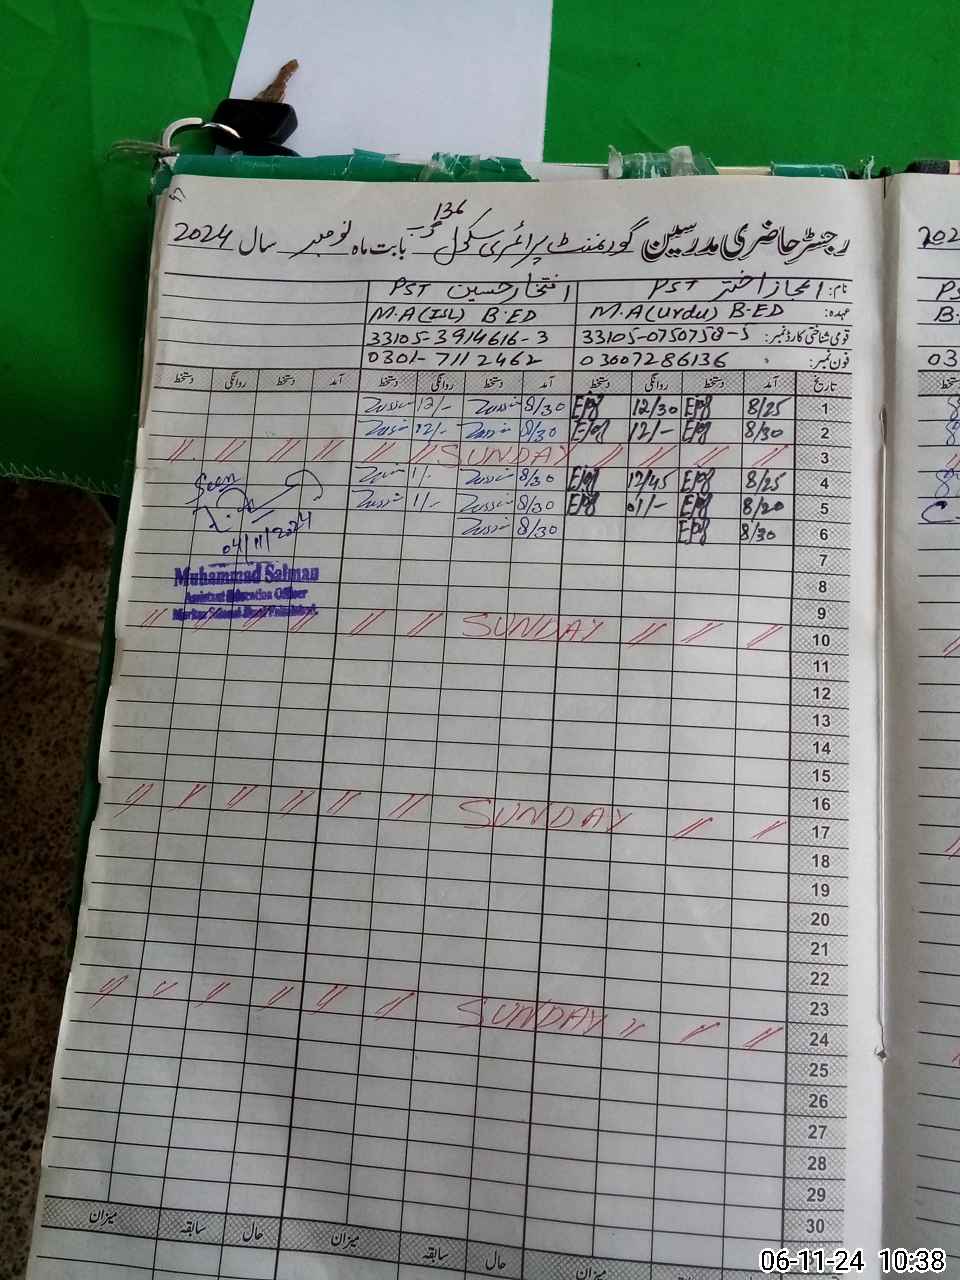 47
136
رجسٹر حاضری مدرسین گورنمنٹ پرائمری سکول گ ب بابت ماہ نومبر سال 2024
نام: اعجاز اختر PST افتخار حسین PST
عہدہ: M.A(Urdu) B.ED M.A(ISL) B.ED
قومی شناختی کارڈ نمبر: 33105-0750758-5 33105-3914616-3
فون نمبر: 03007286136 0301-7112462
تاریخ آمد دستخط روانگی دستخط آمد دستخط روانگی دستخط آمد دستخط روانگی دستخط
1 8/25 12/30 8/30 12/-
2 8/30 12/- 8/30 12/-
3 〃 〃 〃 〃 SUNDAY 〃 〃 〃 〃 〃
4 8/25 12/45 8/30 1/-
5 8/20 01/- 8/30 1/-
6 8/30 8/30
7
8
9
10 〃 〃 〃 SUNDAY 〃 〃 〃 〃 〃 〃
11
12
13
14
15
16
17 〃 〃 SUNDAY 〃 〃 〃 〃 〃 〃
18
19
20
21
22
23
24 〃 〃 〃 SUNDAY 〃 〃 〃 〃 〃 〃
25
26
27
28
29
30
میزان حال سابقہ میزان حال سابقہ میزان
Seen
04/11/2024
Muhammad Salman
Assistant Education Officer
202
PS
B.
03
06-11-24 10:38